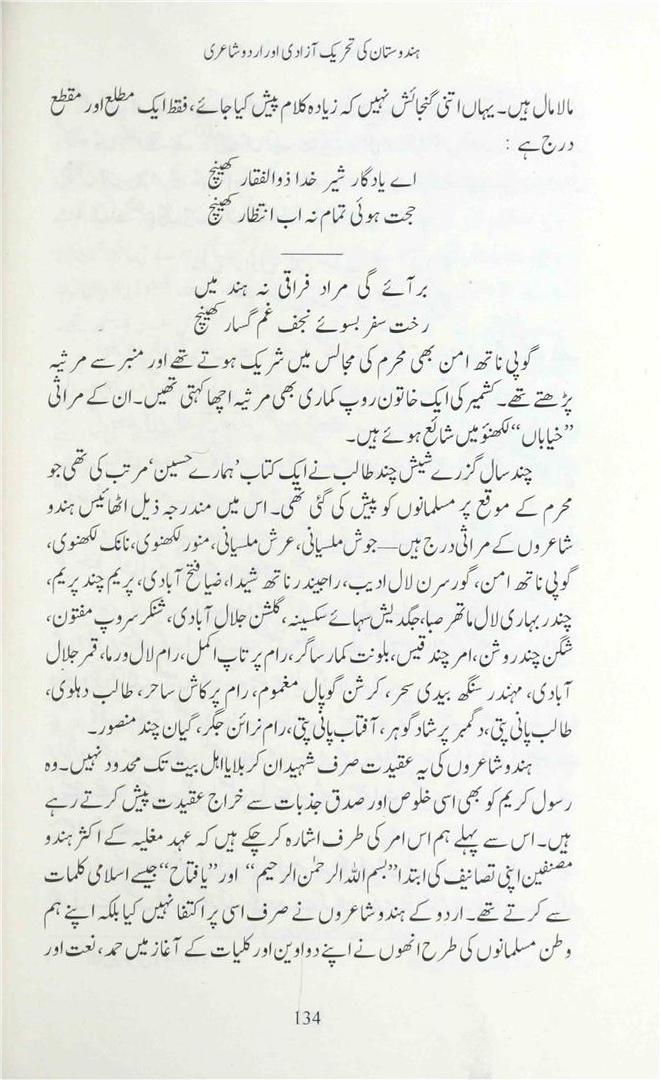 ہندوستان کی تحریک آزادی اور اردو شاعری
مالا مال ہیں۔ یہاں اتنی گنجائش نہیں کہ زیادہ کلام پیش کیا جائے، فقط ایک مطلع اور مقطع
درج ہے :
اے یادگار شیر خدا ذوالفقار کھینچ
حجت ہوئی تمام نہ اب انتظار کھینچ
بر آئے گی مراد فراقی نہ ہند میں
رخت سفر بسوئے نجف غم گسار کھینچ
گوپی ناتھ امن بھی محرم کی مجالس میں شریک ہوتے تھے اور منبر سے مرثیہ
پڑھتے تھے۔ کشمیر کی ایک خاتون روپ کماری بھی مرثیہ اچھا کہتی تھیں۔ ان کے مراثی
”خیاباں“ لکھنؤ میں شائع ہوئے ہیں۔
چند سال گزرے شیش چند طالب نے ایک کتاب ’ہمارے حسین‘ مرتب کی تھی جو
محرم کے موقع پر مسلمانوں کو پیش کی گئی تھی۔ اس میں مندرجہ ذیل اٹھائیس ہندو
شاعروں کے مراثی درج ہیں—جوش ملسیانی، عرش ملسیانی، منور لکھنوی، نانک لکھنوی،
گوپی ناتھ امن، گور سرن لال ادیب، راجیندر ناتھ شیدا، ضیا فتح آبادی، پریم چند پریم،
چندر بہاری لال ماتھر صبا، جگدیش سہائے سکسینہ، گلشن جلال آبادی، شنکر سروپ مفتون،
شگن چند روشن، امر چند قیس، بلونت کمار ساگر، رام پرتاپ اکمل، رام لال ورما، قمر جلال
آبادی، مہندر سنگھ بیدی سحر، کرشن گوپال مغموم، رام پرکاش ساحر، طالب دہلوی،
طالب پانی پتی، دگمبر پرشاد گوہر، آفتاب پانی پتی، رام نرائن جگر، گیان چند منصور۔
ہندو شاعروں کی یہ عقیدت صرف شہیدان کربلا یا اہل بیت تک محدود نہیں۔ وہ
رسول کریم کو بھی اسی خلوص اور صدق جذبات سے خراج عقیدت پیش کرتے رہے
ہیں۔ اس سے پہلے ہم اس امر کی طرف اشارہ کر چکے ہیں کہ عہد مغلیہ کے اکثر ہندو
مصنفین اپنی تصانیف کی ابتدا ”بسم اللہ الرحمٰن الرحیم“ اور ”یا فتاح“ جیسے اسلامی کلمات
سے کرتے تھے۔ اردو کے ہندو شاعروں نے صرف اسی پر اکتفا نہیں کیا بلکہ اپنے ہم
وطن مسلمانوں کی طرح انھوں نے اپنے دواوین اور کلیات کے آغاز میں حمد، نعت اور
134